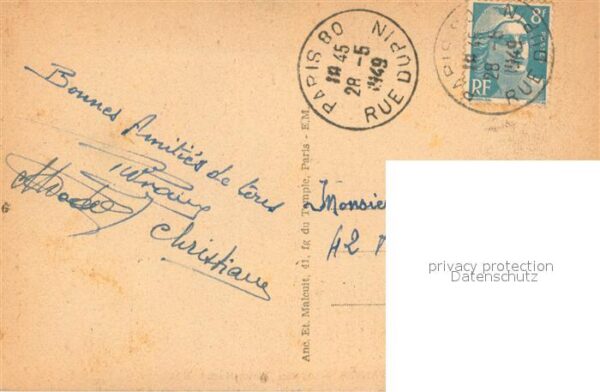 PARIS 80
18 45
28 -5
1949
RUE DUPIN
PARIS 80
18 45
28 -5
1949
RUE DUPIN
8F
RF
Bonnes Amitiés de tous
Christiane
Anc. Et. Malcuit, 41, fg du Temple, Paris - E.M.
Monsieur
42
privacy protection
Datenschutz